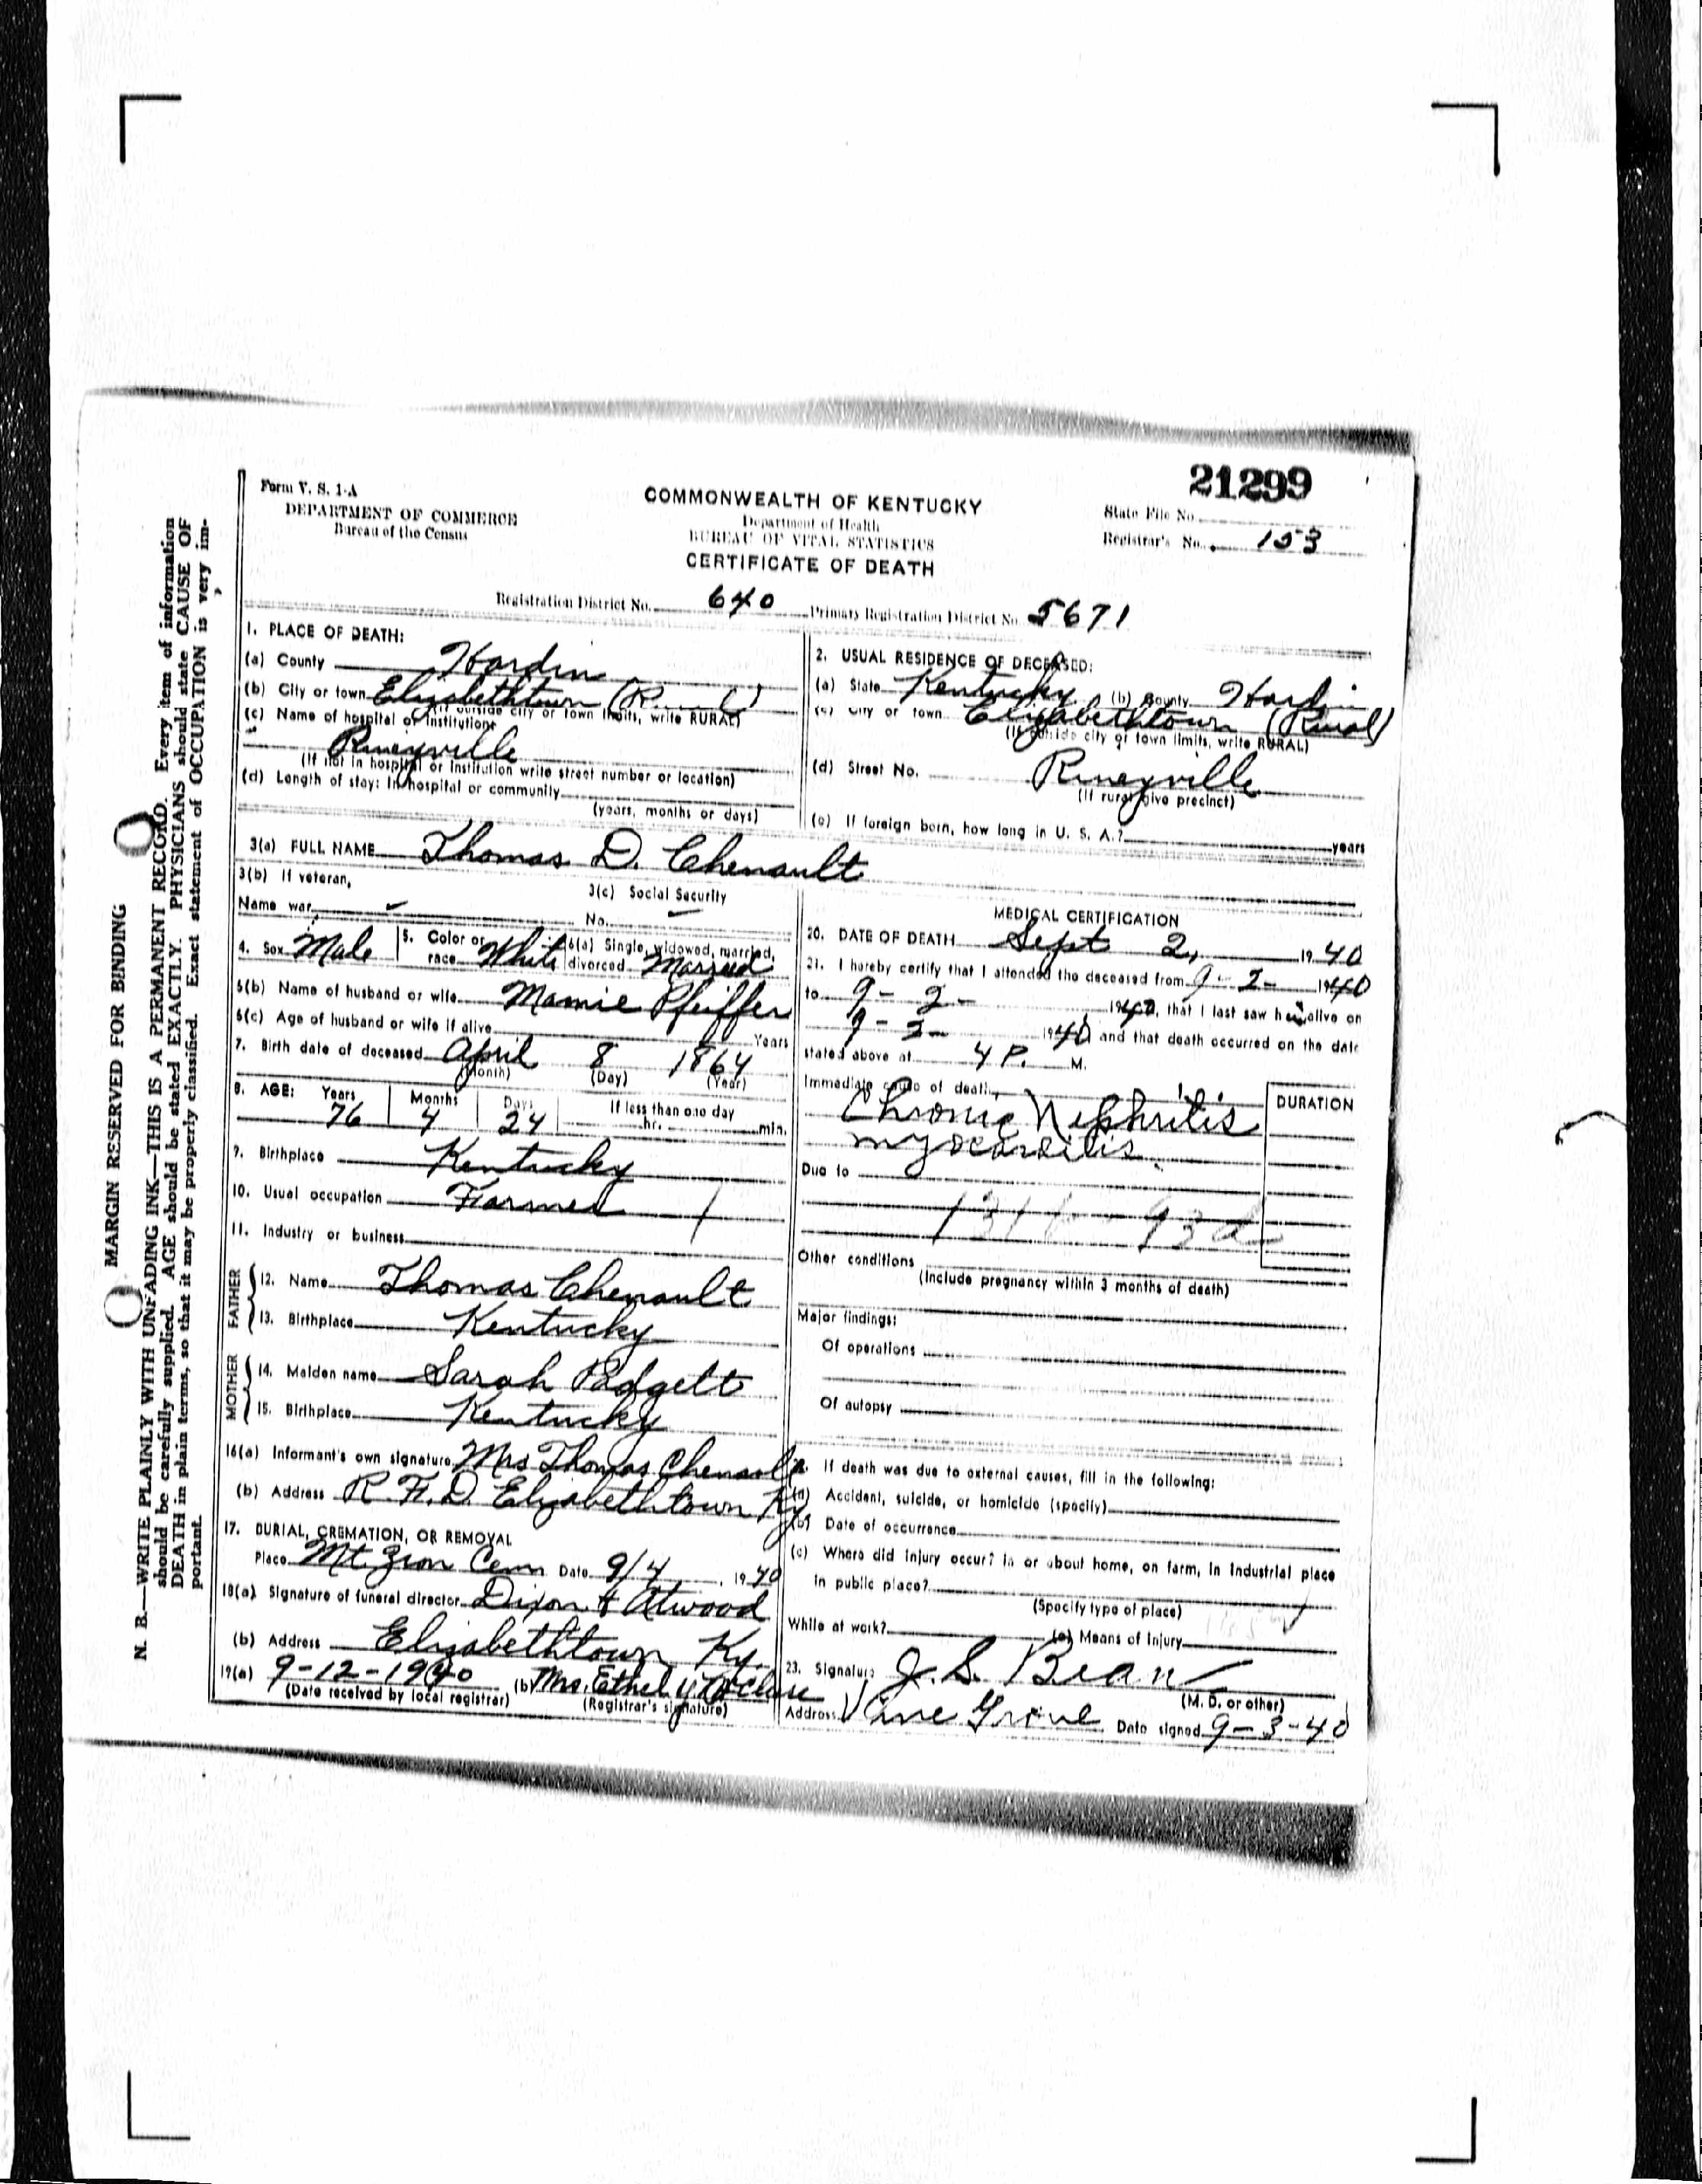 MARGIN RESERVED FOR BINDING
N. B.—WRITE PLAINLY WITH UNFADING INK—THIS IS A PERMANENT RECORD. Every item of information
should be carefully supplied. AGE should be stated EXACTLY. PHYSICIANS should state CAUSE OF
DEATH in plain terms, so that it may be properly classified. Exact statement of OCCUPATION is very im-
portant.
Form V. S. 1-A
DEPARTMENT OF COMMERCE
Bureau of the Census
COMMONWEALTH OF KENTUCKY
Department of Health
BUREAU OF VITAL STATISTICS
CERTIFICATE OF DEATH
21299
State File No.
Registrar's No. 153
Registration District No. 640 Primary Registration District No. 5671
1. PLACE OF DEATH:
(a) County Hardin
(b) City or town Elizabethtown (Rural)
(If outside city or town limits, write RURAL)
(c) Name of hospital or institution:
Rineyville
(If not in hospital or institution write street number or location)
(d) Length of stay: In hospital or community
(years, months or days)
2. USUAL RESIDENCE OF DECEASED:
(a) State Kentucky (b) County Hardin
(c) City or town Elizabethtown (Rural)
(If outside city or town limits, write RURAL)
(d) Street No. Rineyville
(If rural give precinct)
(e) If foreign born, how long in U. S. A.? years
3(a) FULL NAME Thomas D. Chenault
3(b) If veteran,
Name war
3(c) Social Security
No.
4. Sex Male
5. Color or
race White
6(a) Single, widowed, married,
divorced Married
6(b) Name of husband or wife Mamie Pfeiffer
6(c) Age of husband or wife if alive Years
7. Birth date of deceased April 8 1864
(Month) (Day) (Year)
8. AGE: Years Months Days If less than one day
76 4 24 hr. min.
9. Birthplace Kentucky
10. Usual occupation Farmer
11. Industry or business
FATHER
12. Name Thomas Chenault
13. Birthplace Kentucky
MOTHER
14. Maiden name Sarah Padgett
15. Birthplace Kentucky
16(a) Informant's own signature Mrs Thomas Chenault
(b) Address R. F. D. Elizabethtown Ky
17. BURIAL, CREMATION, OR REMOVAL
Place Mt. Zion Cem Date 9/4, 1940
18(a) Signature of funeral director Dixon & Atwood
(b) Address Elizabethtown Ky.
19(a) 9-12-1940 (b) Mrs. Ethel
(Date received by local registrar) (Registrar's signature)
MEDICAL CERTIFICATION
20. DATE OF DEATH Sept 2, 1940
21. I hereby certify that I attended the deceased from 9-2- 1940
to 9-2- 1940, that I last saw him alive on
9-2- 1940 and that death occurred on the date
stated above at 4 P. M.
Immediate cause of death
Chronic Nephritis
myocarditis
DURATION
Due to
Other conditions
(Include pregnancy within 3 months of death)
Major findings:
Of operations
Of autopsy
22. If death was due to external causes, fill in the following:
(a) Accident, suicide, or homicide (specify)
(b) Date of occurrence
(c) Where did injury occur? in or about home, on farm, in industrial place
in public place?
(Specify type of place)
While at work? (e) Means of Injury
23. Signature J. S. Bean
(M. D. or other)
Address Vine Grove Date signed 9-3-40